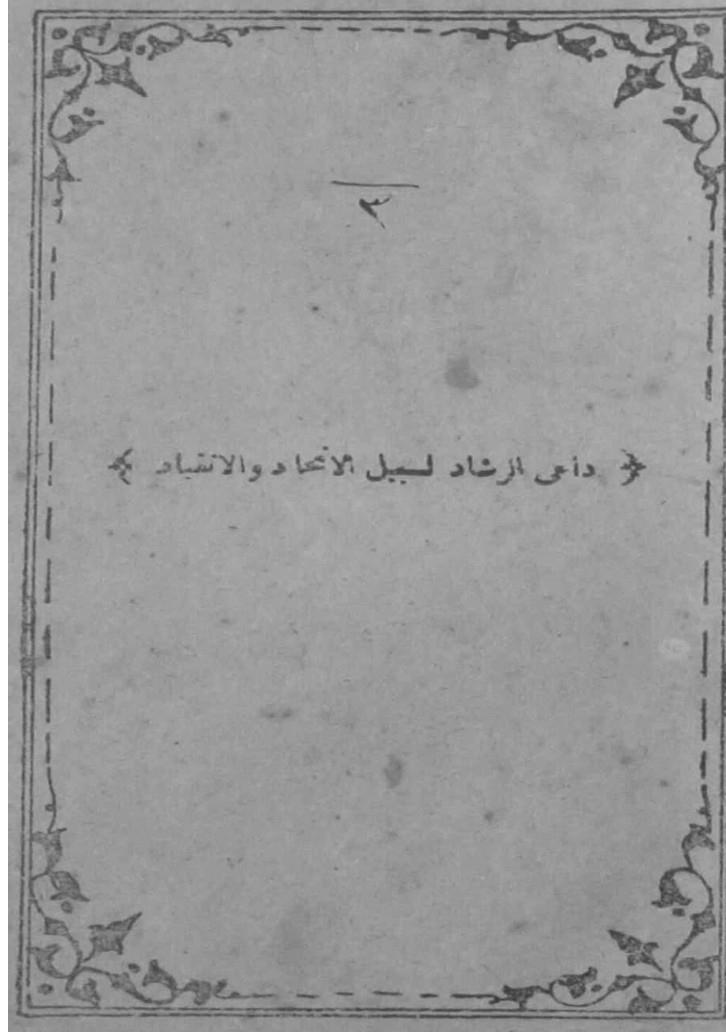 ٣
داعى الرشاد لسبيل الاتحاد والانقياد